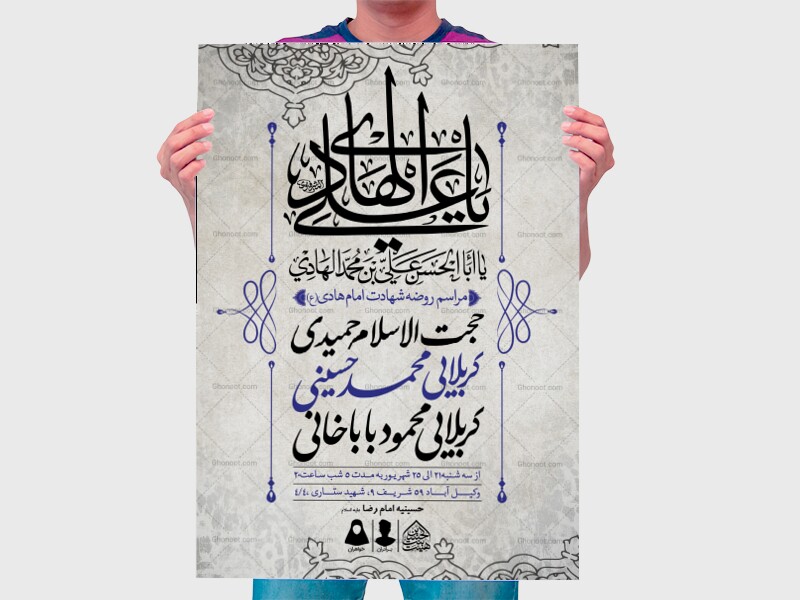 یا علی الهادی
یا اباالحسن علی بن محمد الهادی
مراسم روضه شهادت امام هادی (ع)
حجت الاسلام حمیدی
کربلایی محمد حسینی
کربلایی محمود باباخانی
از سه شنبه ۲۱ الی ۲۵ شهریور به مدت ۵ شب ساعت ۲۰
وکیل آباد ۵۹ شریف ۹، شهید ستاری ۴/۴۰
حسینیه امام رضا علیه السلام
برادران
خواهران
Ghonoot.com